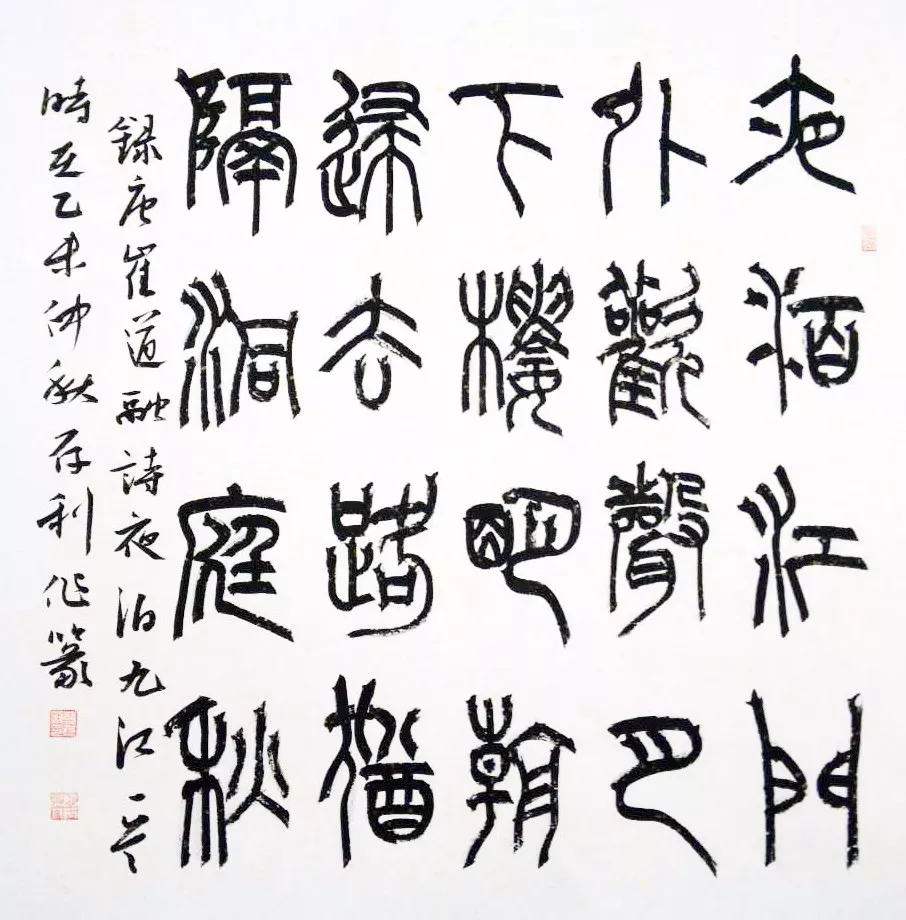 夜泊江門
外歡聲月
下樓明朝
歸去路猶
隔洞庭秋
錄唐崔道融詩夜泊九江一首
時在乙未仲秋存利作篆